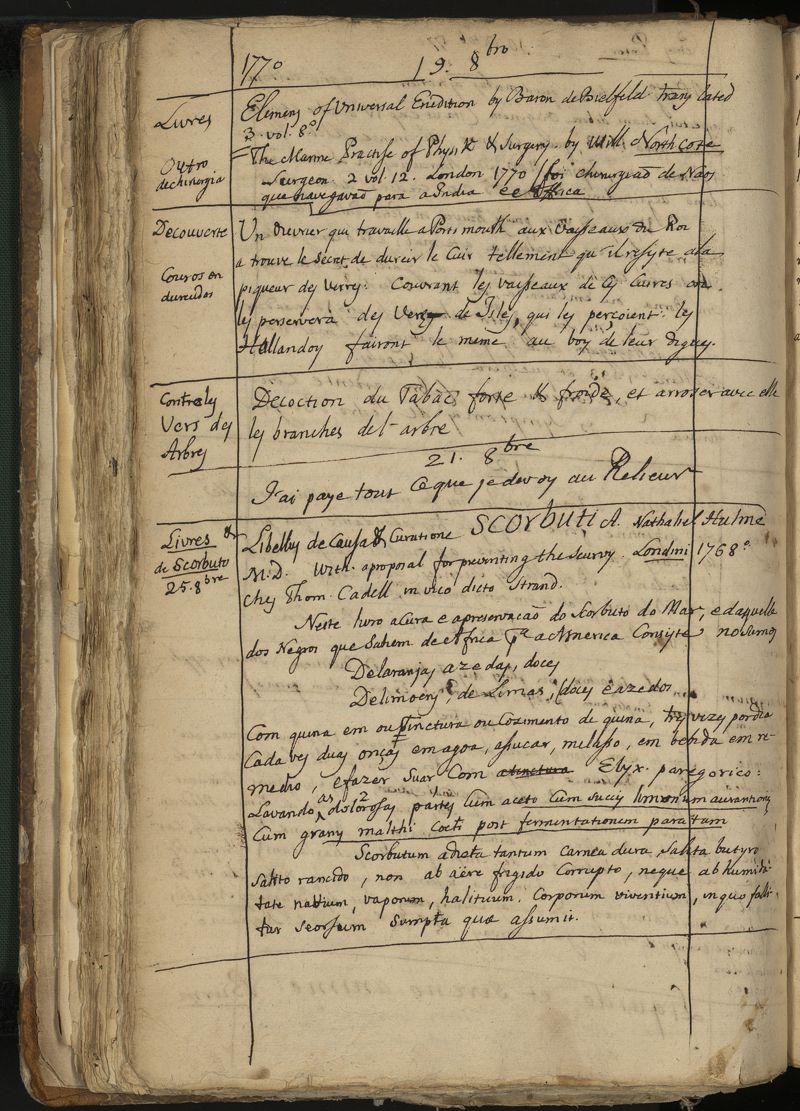 1770 19. 8bro
Livres
Elemens of Universal Erudition by Baron de Bielfeld translated
3. vol. 8o
Outro de chirurgia
The Marine Practise of Physik & Surgery. by Will. Northcote
Surgeon. 2 vol. 12. London 1770 foi chirurgiaõ de Naos
que navegavaõ para a India e Africa
Decouverte
Un Ouvrier qui travaille a Portsmouth aux Vaisseaux du Roi
a trouve le secret de durcir le Cuir tellement qu'il resyste a la
Couros en
durecidos
piqueur des Verrs. Couvrant les vaisseaux de ces Cuires on
les perservera des Vers de Isles, qui les perçoient: les
Hollandois fairont le meme au bois de leur digues.
Contre les
Vers des
Arbres
Decoction du Tabac forte & froide, et arroser avec elle
les branches de l'arbre
21. 8bre
J'ai paye tout Ce que je devois au Relieur
Livres &
de Scorbuto
25. 8bre
Libellus de Causa & Curatione Scorbuti A. Nathaniel Hulme
M.D. With a proposal for preventing the Scurvy. Londini 1768.
Chez Thom. Cadell in vico dicto Strand.
Neste livro a Cura e a preservacaõ do Scorbuto do Mar, e daquelle
dos Negros que Sahem de Africa pa a America Consyte no sumo
De laranjas azedas, doces
De limoens, de Limas, doces e azedos
Com quina em ou Tinctura ou Cozimento de quina, tres vezes por dia
Cada ves duas onças em agoa, assucar, melasso, em bebida em re-
medio, e fazer Suar Com a tinctura Elyx. paregorico:
Lavando as dolorosas partes Cum aceto Cum succis limonum aurantiorum
Cum granis malthi Cocti post fermentationem paratum
Scorbutum a dieta tantum Carnea dura, Salita butyro
Salito rancido, non ab aëre frigido Corrupto, neque ab humidi-
tate navium, vaporum, halituum. Corporum viventium, in quo falli-
tur seorsum Sumpta quæ assumit.